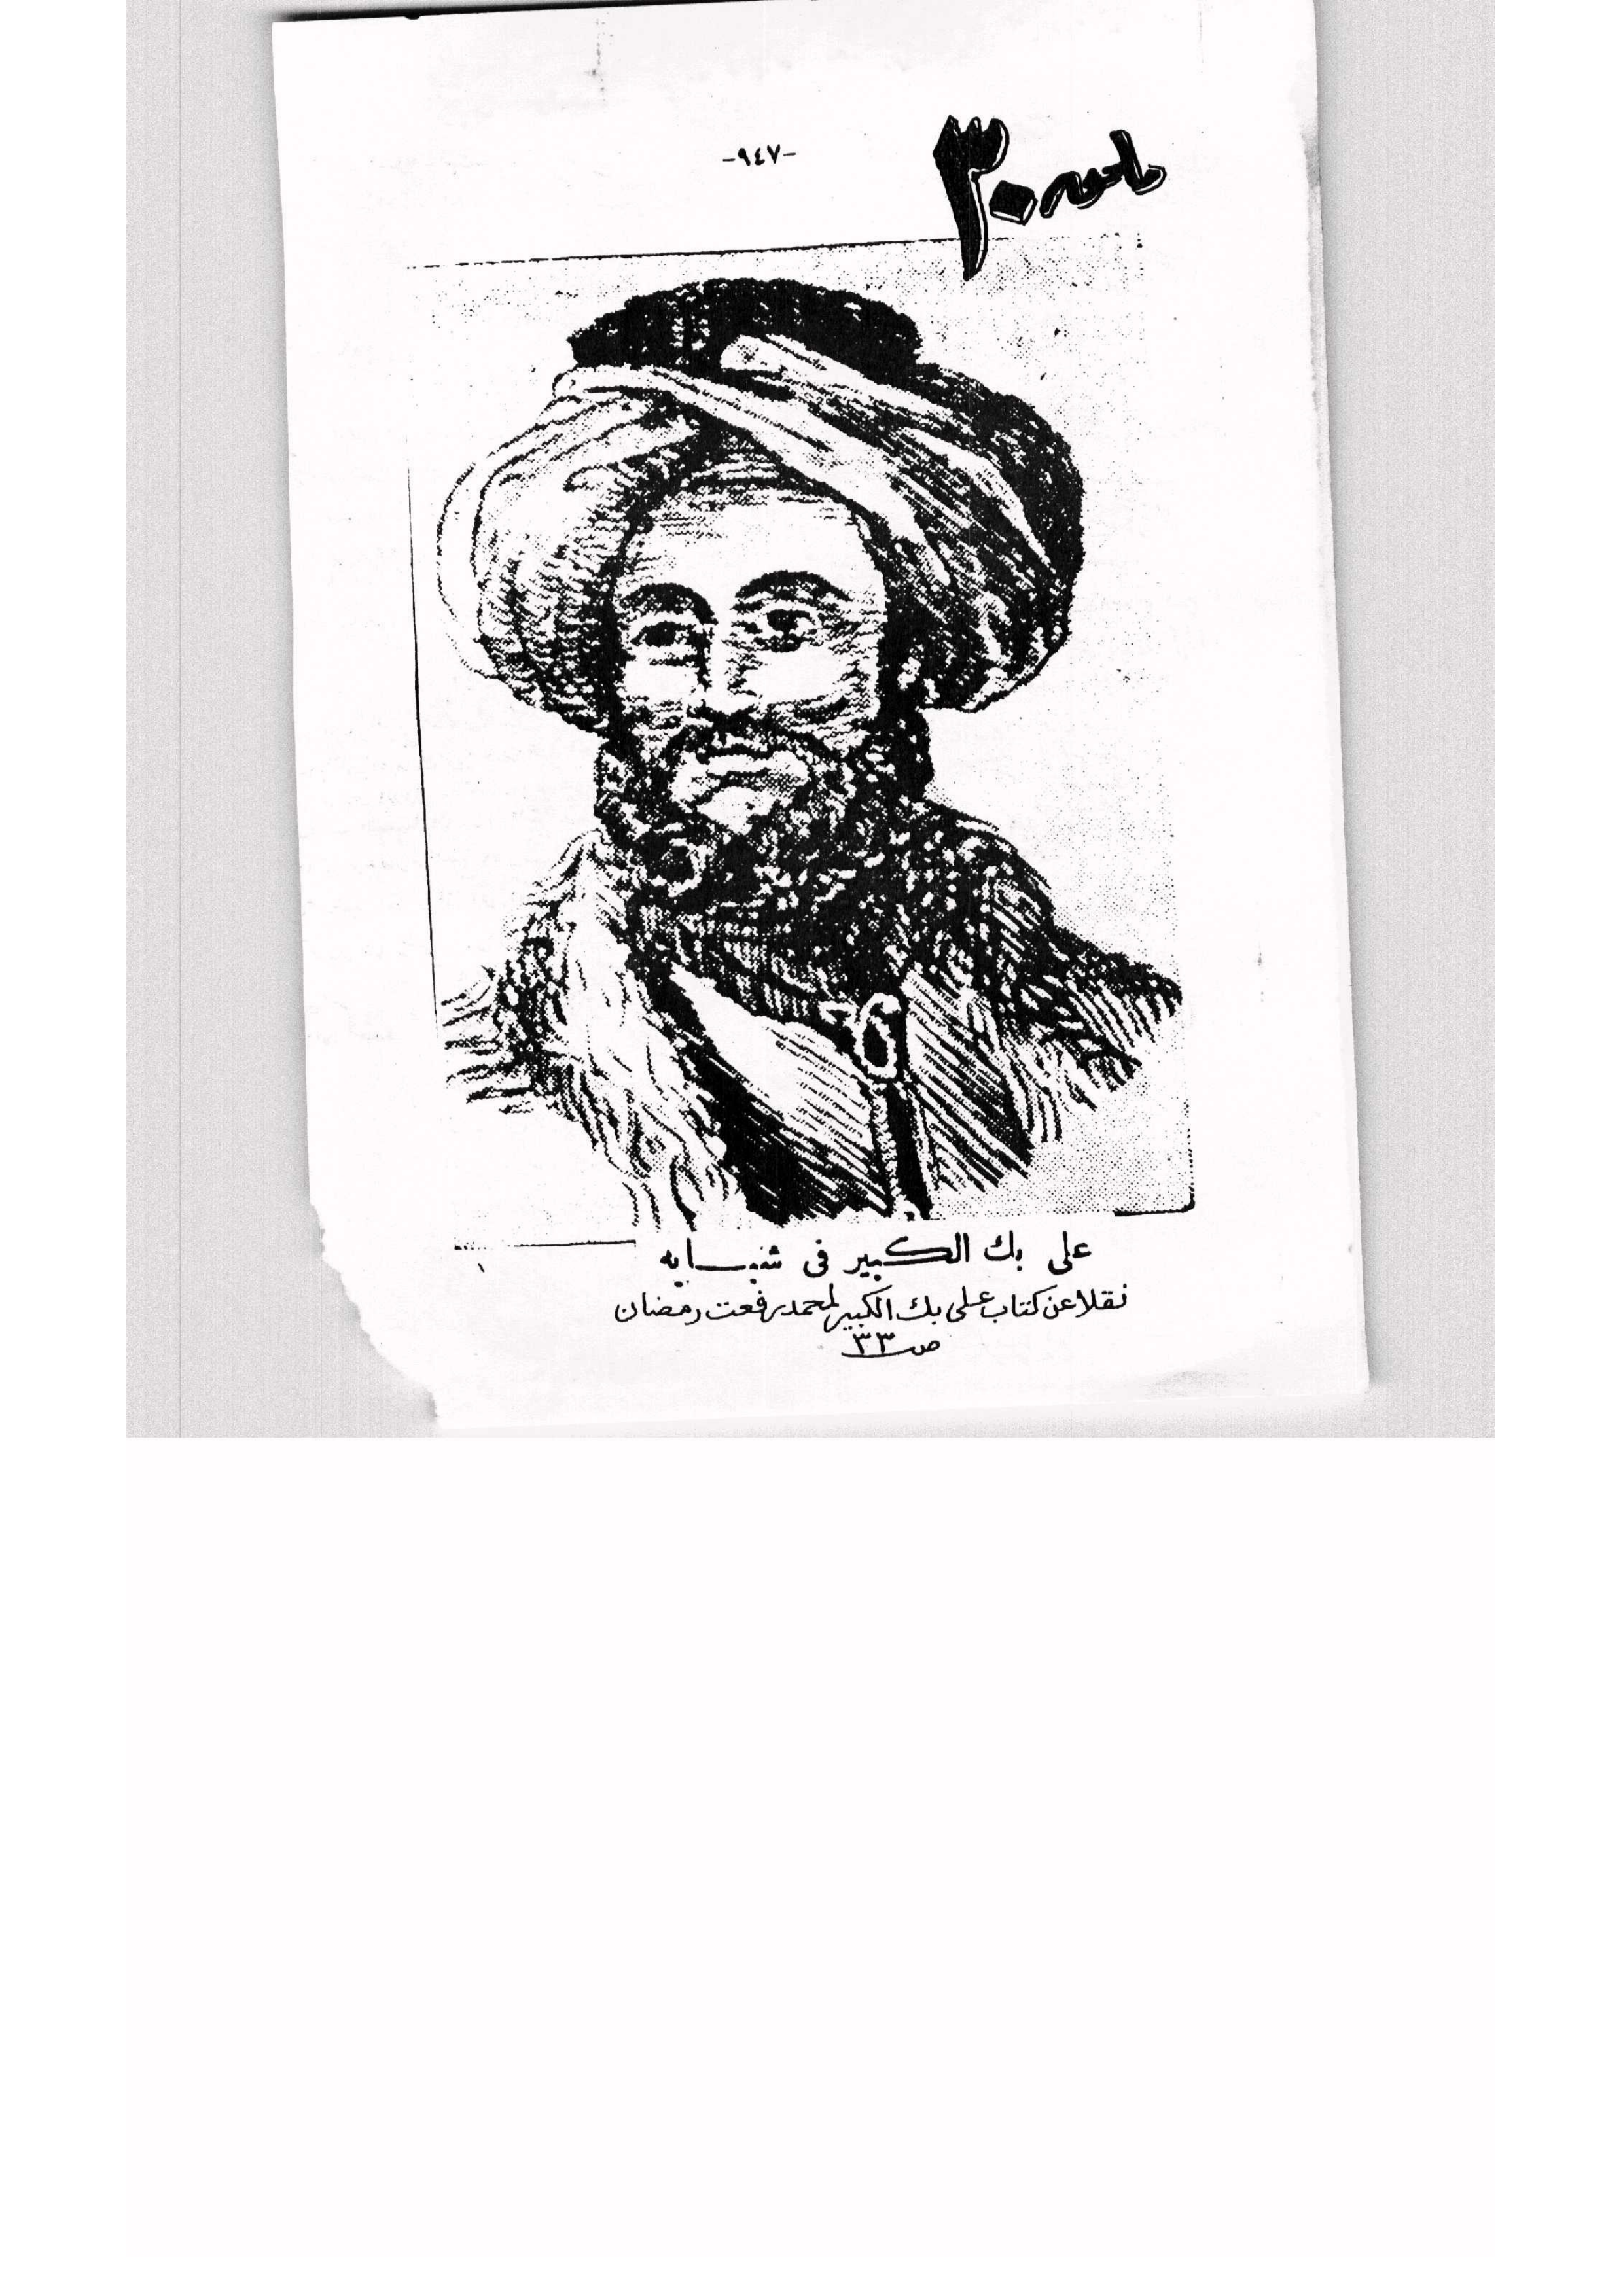 -٩٤٧-
ملحق ٣٠
على بك الكبير فى شبابه
نقلا عن كتاب على بك الكبير لمحمد رفعت رمضان
ص ٣٣